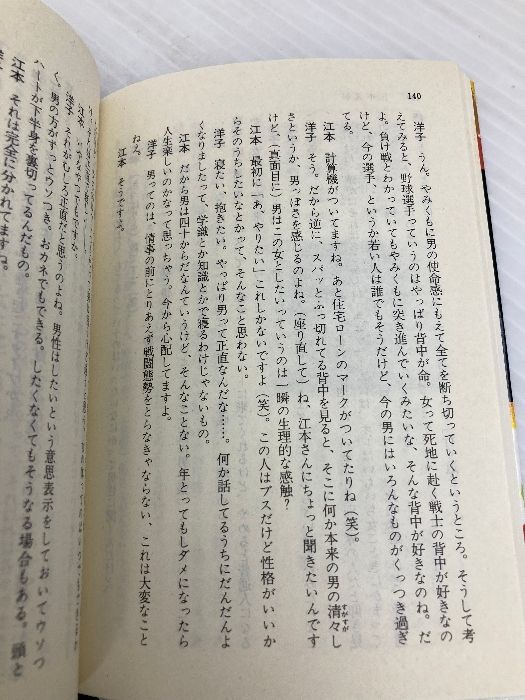 140
洋子　うん。やみくもに男の使命感にもえて全てを断ち切っていくというところ。そうして考
えてみると、野球選手っていうのはやっぱり背中が命。女って死地に赴く戦士の背中が好きなの
よ。負け戦とわかっていてもやみくもに突き進んでいくみたいな、そんな背中が好きなのね。だ
けど、今の選手、というか若い人は誰でもそうだけど、今の男にはいろんなものがくっつき過ぎ
てる。
江本　計算機がついてますね。あと住宅ローンのマークがついてたりね（笑）。
洋子　そう。だから逆に、スパッとふっ切れてる背中を見ると、そこに何か本来の男の清々し
すがすが
さというか、男っぽさを感じるのよね。（座り直して）ね、江本さんにちょっと聞きたいんです
けど、（真面目に）男はこの女としたいっていうのは一瞬の生理的な感触？
江本　最初に「あ、やりたい」これしかないですよ（笑）。この人はブスだけど性格がいいか
らそのうちしたいなとかって、そんなこと思わない。
洋子　寝たい、抱きたい。やっぱり男って正直なんだな……。何か話してるうちにだんだんよ
くなりましたって、学識とか知識とかで寝るわけじゃないもの。
江本　だから男は四十からだなんていうけど、そんなことない。年とってもしダメになったら
人生楽しいのかなって思っちゃう。今から心配してますよ。
洋子　男ってのは、情事の前にとりあえず戦闘態勢をとらなきゃならない、これは大変なこと
ねえ。
江本　そうですよ。
江本　いやなやつでもですか。
洋子　それがむしろ正直だと思うのよね。男性はしたいという意思表示をしておいてウソつ
く。男の方がずっとウソつき。おカネでもできる。したくなくてもそうなる場合もある。頭と
ハートが下半身を裏切ってるんだもの。
江本　それは完全に分かれてますね。